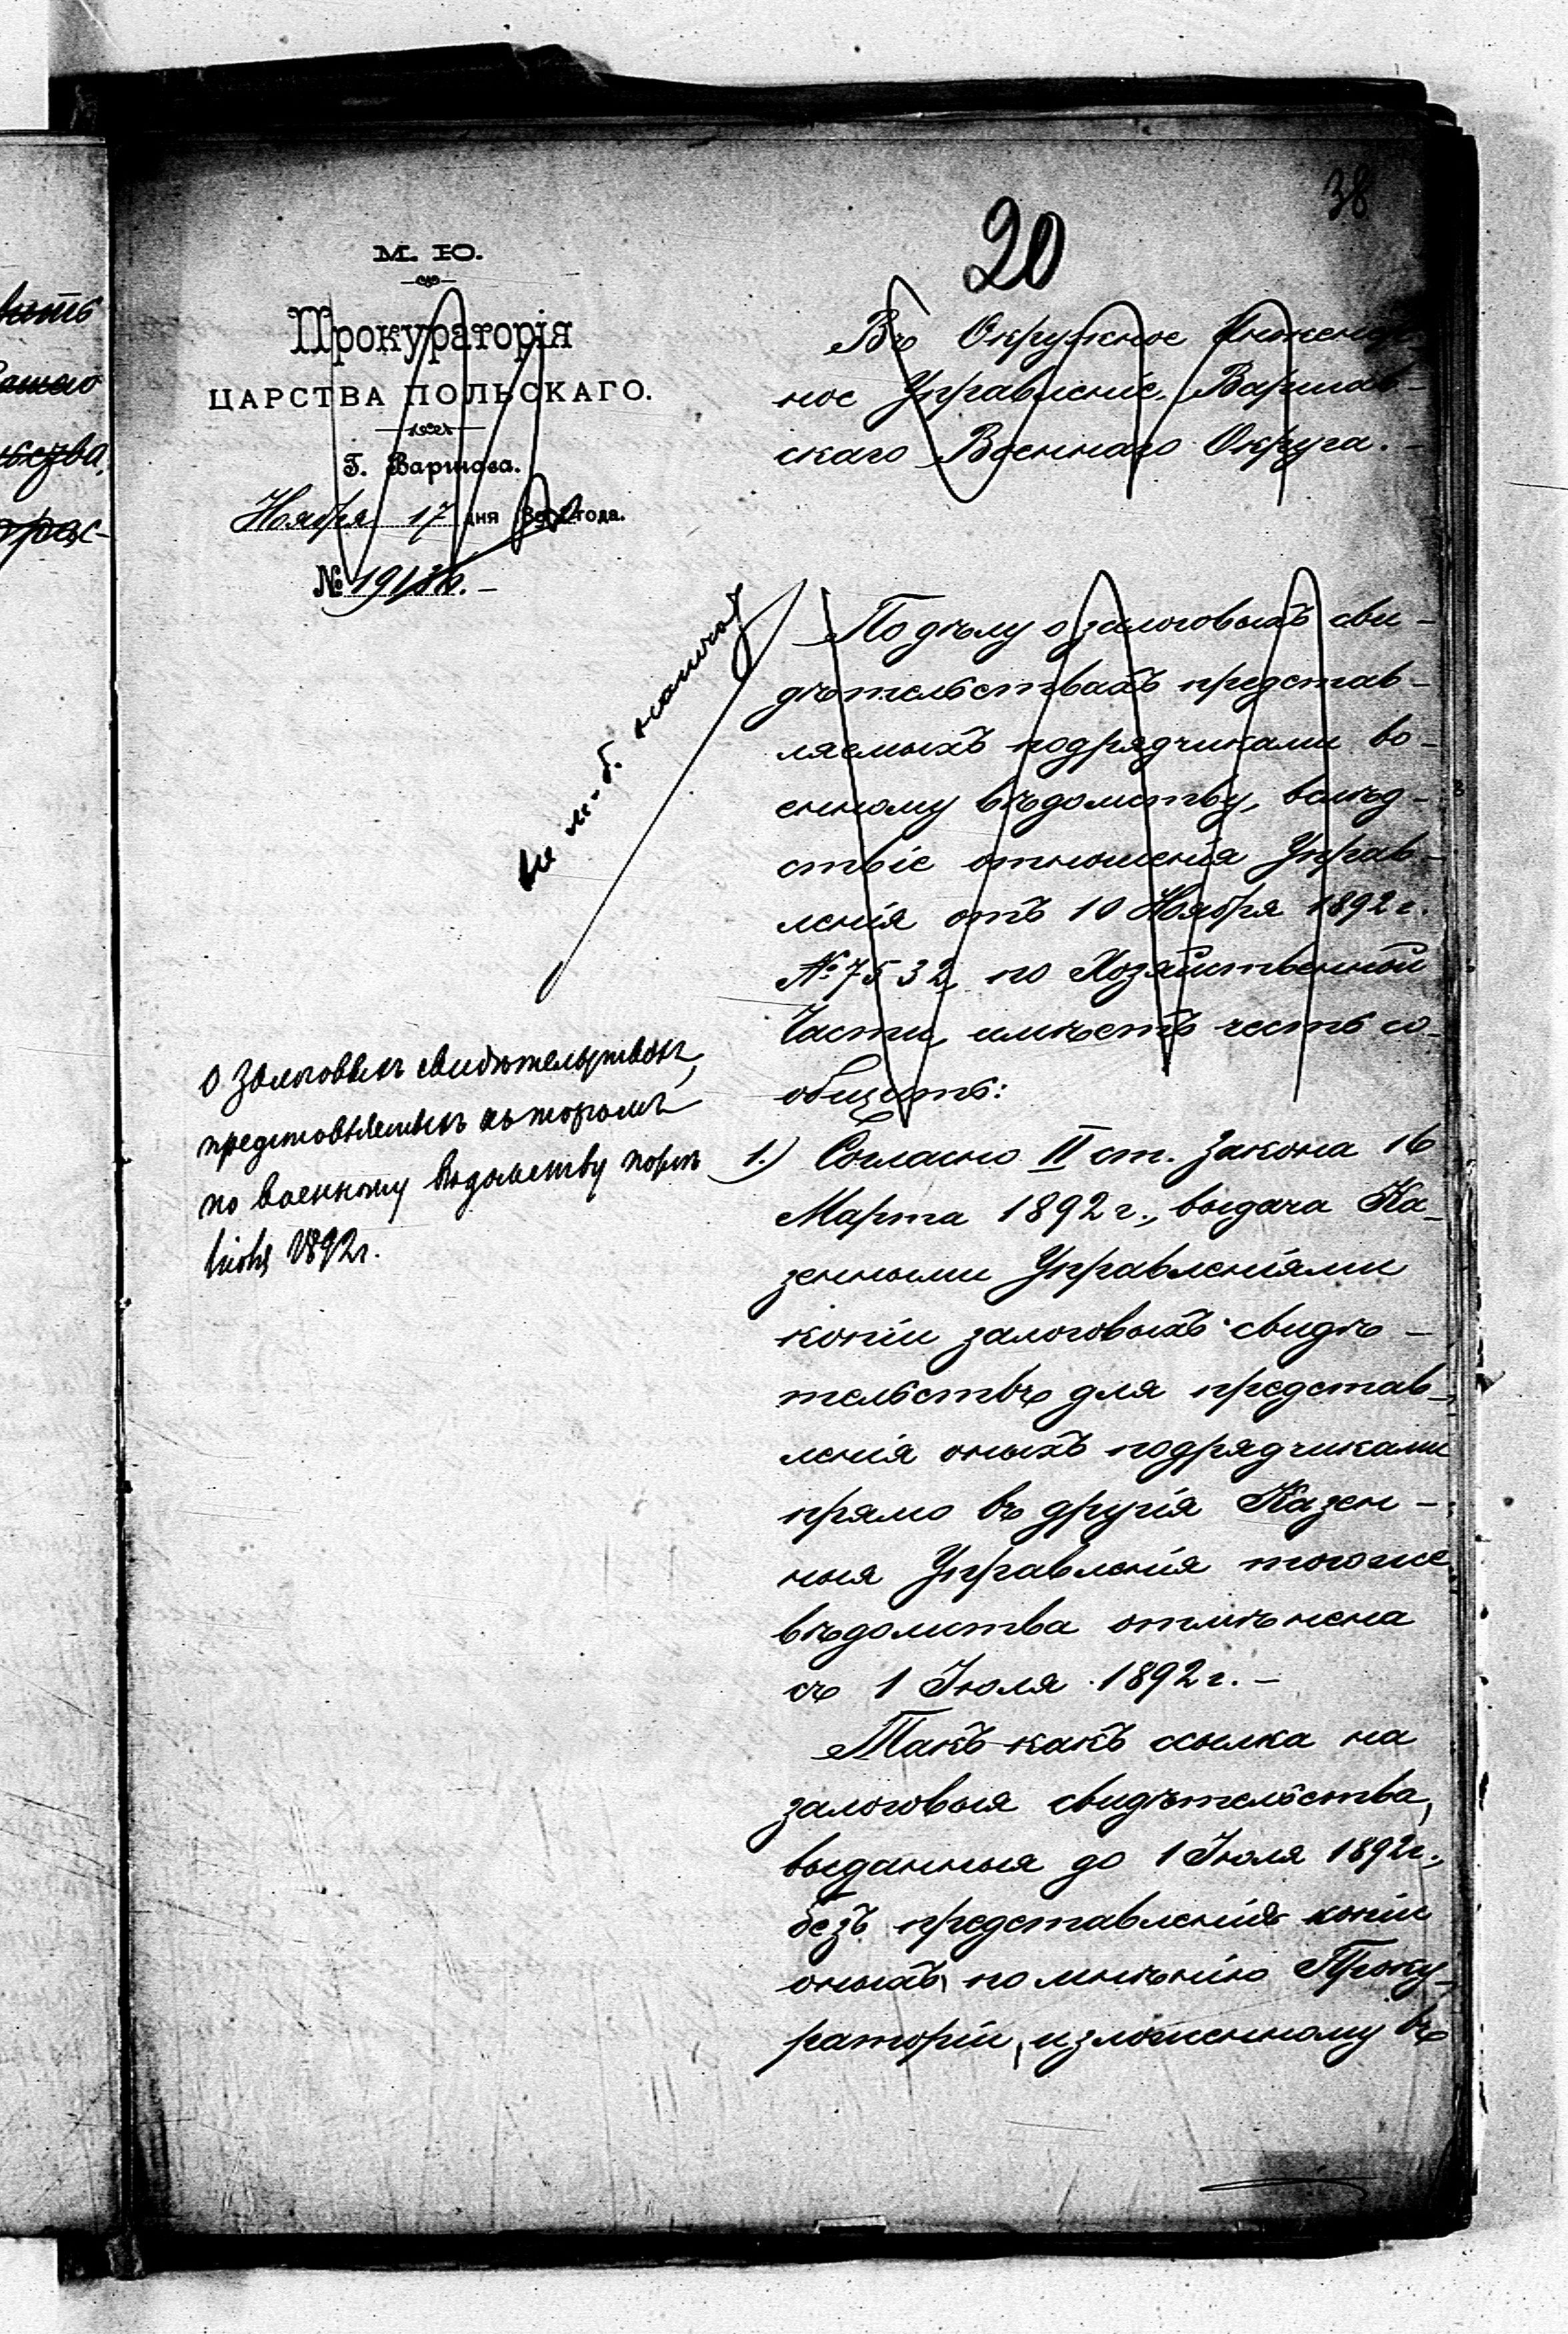 38
20
М. Ю.
Прокураторія
ЦАРСТВА ПОЛЬСКАГО.
Г. Варшава.
Ноября 17 дня 1892 года.
№ 19186. –
Въ Окружное Инженер-
ное Управленіе Варшав-
скаго Военнаго Округа. –
По дѣлу о залоговыхъ сви-
дѣтельствахъ представ-
ляемыхъ подрядчиками во-
енному вѣдомству, вслѣд-
ствіе отношенія Управ-
ленія отъ 10 Ноября 1892 г.
№ 7532 по Хозяйственной
Части, имѣетъ честь со-
общить:
О залоговыхъ свидѣтельствахъ,
представляемыхъ къ торгамъ
по военному вѣдомству послѣ
іюля 1892 г.
1.) Согласно II ст. Закона 16
Марта 1892 г., выдача Ка-
зенными Управленіями
копіи залоговыхъ свидѣ-
тельствъ для представ-
ленія оныхъ подрядчиками
прямо въ другія Казен-
ныя Управленія тогоже
вѣдомства отмѣнена
съ 1 Іюля 1892 г. –
Такъ какъ ссылка на
залоговыя свидѣтельства,
выданныя до 1 Іюля 1892 г.,
безъ представленія копіи
оныхъ, по мнѣнію Проку-
раторіи, изложенному въ